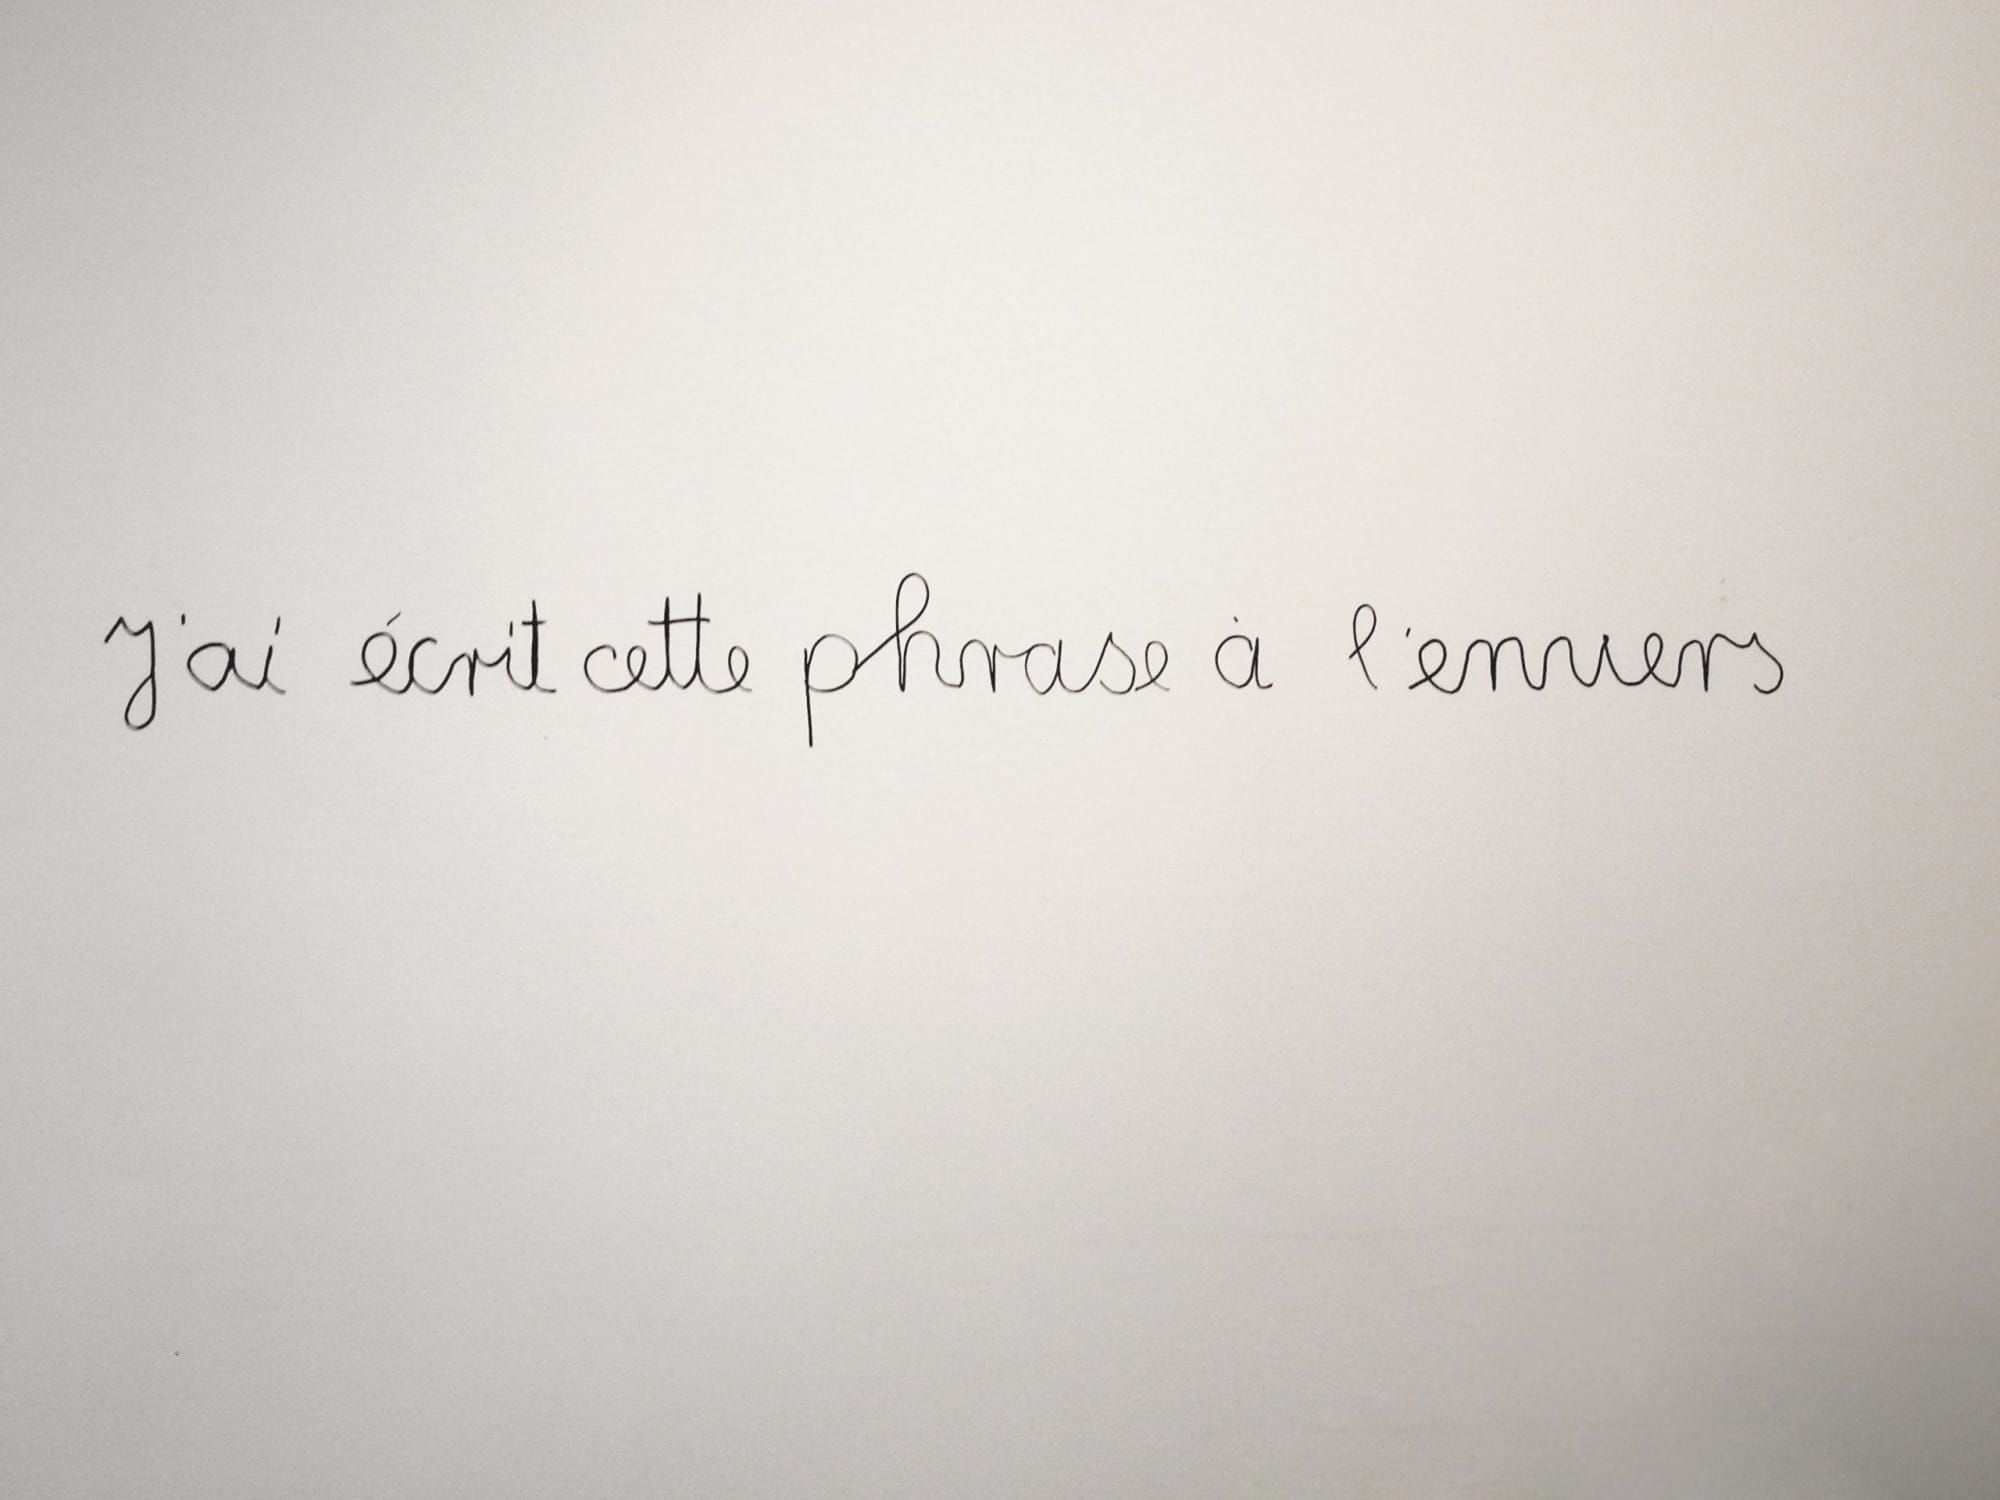 J'ai écrit cette phrase à l'envers